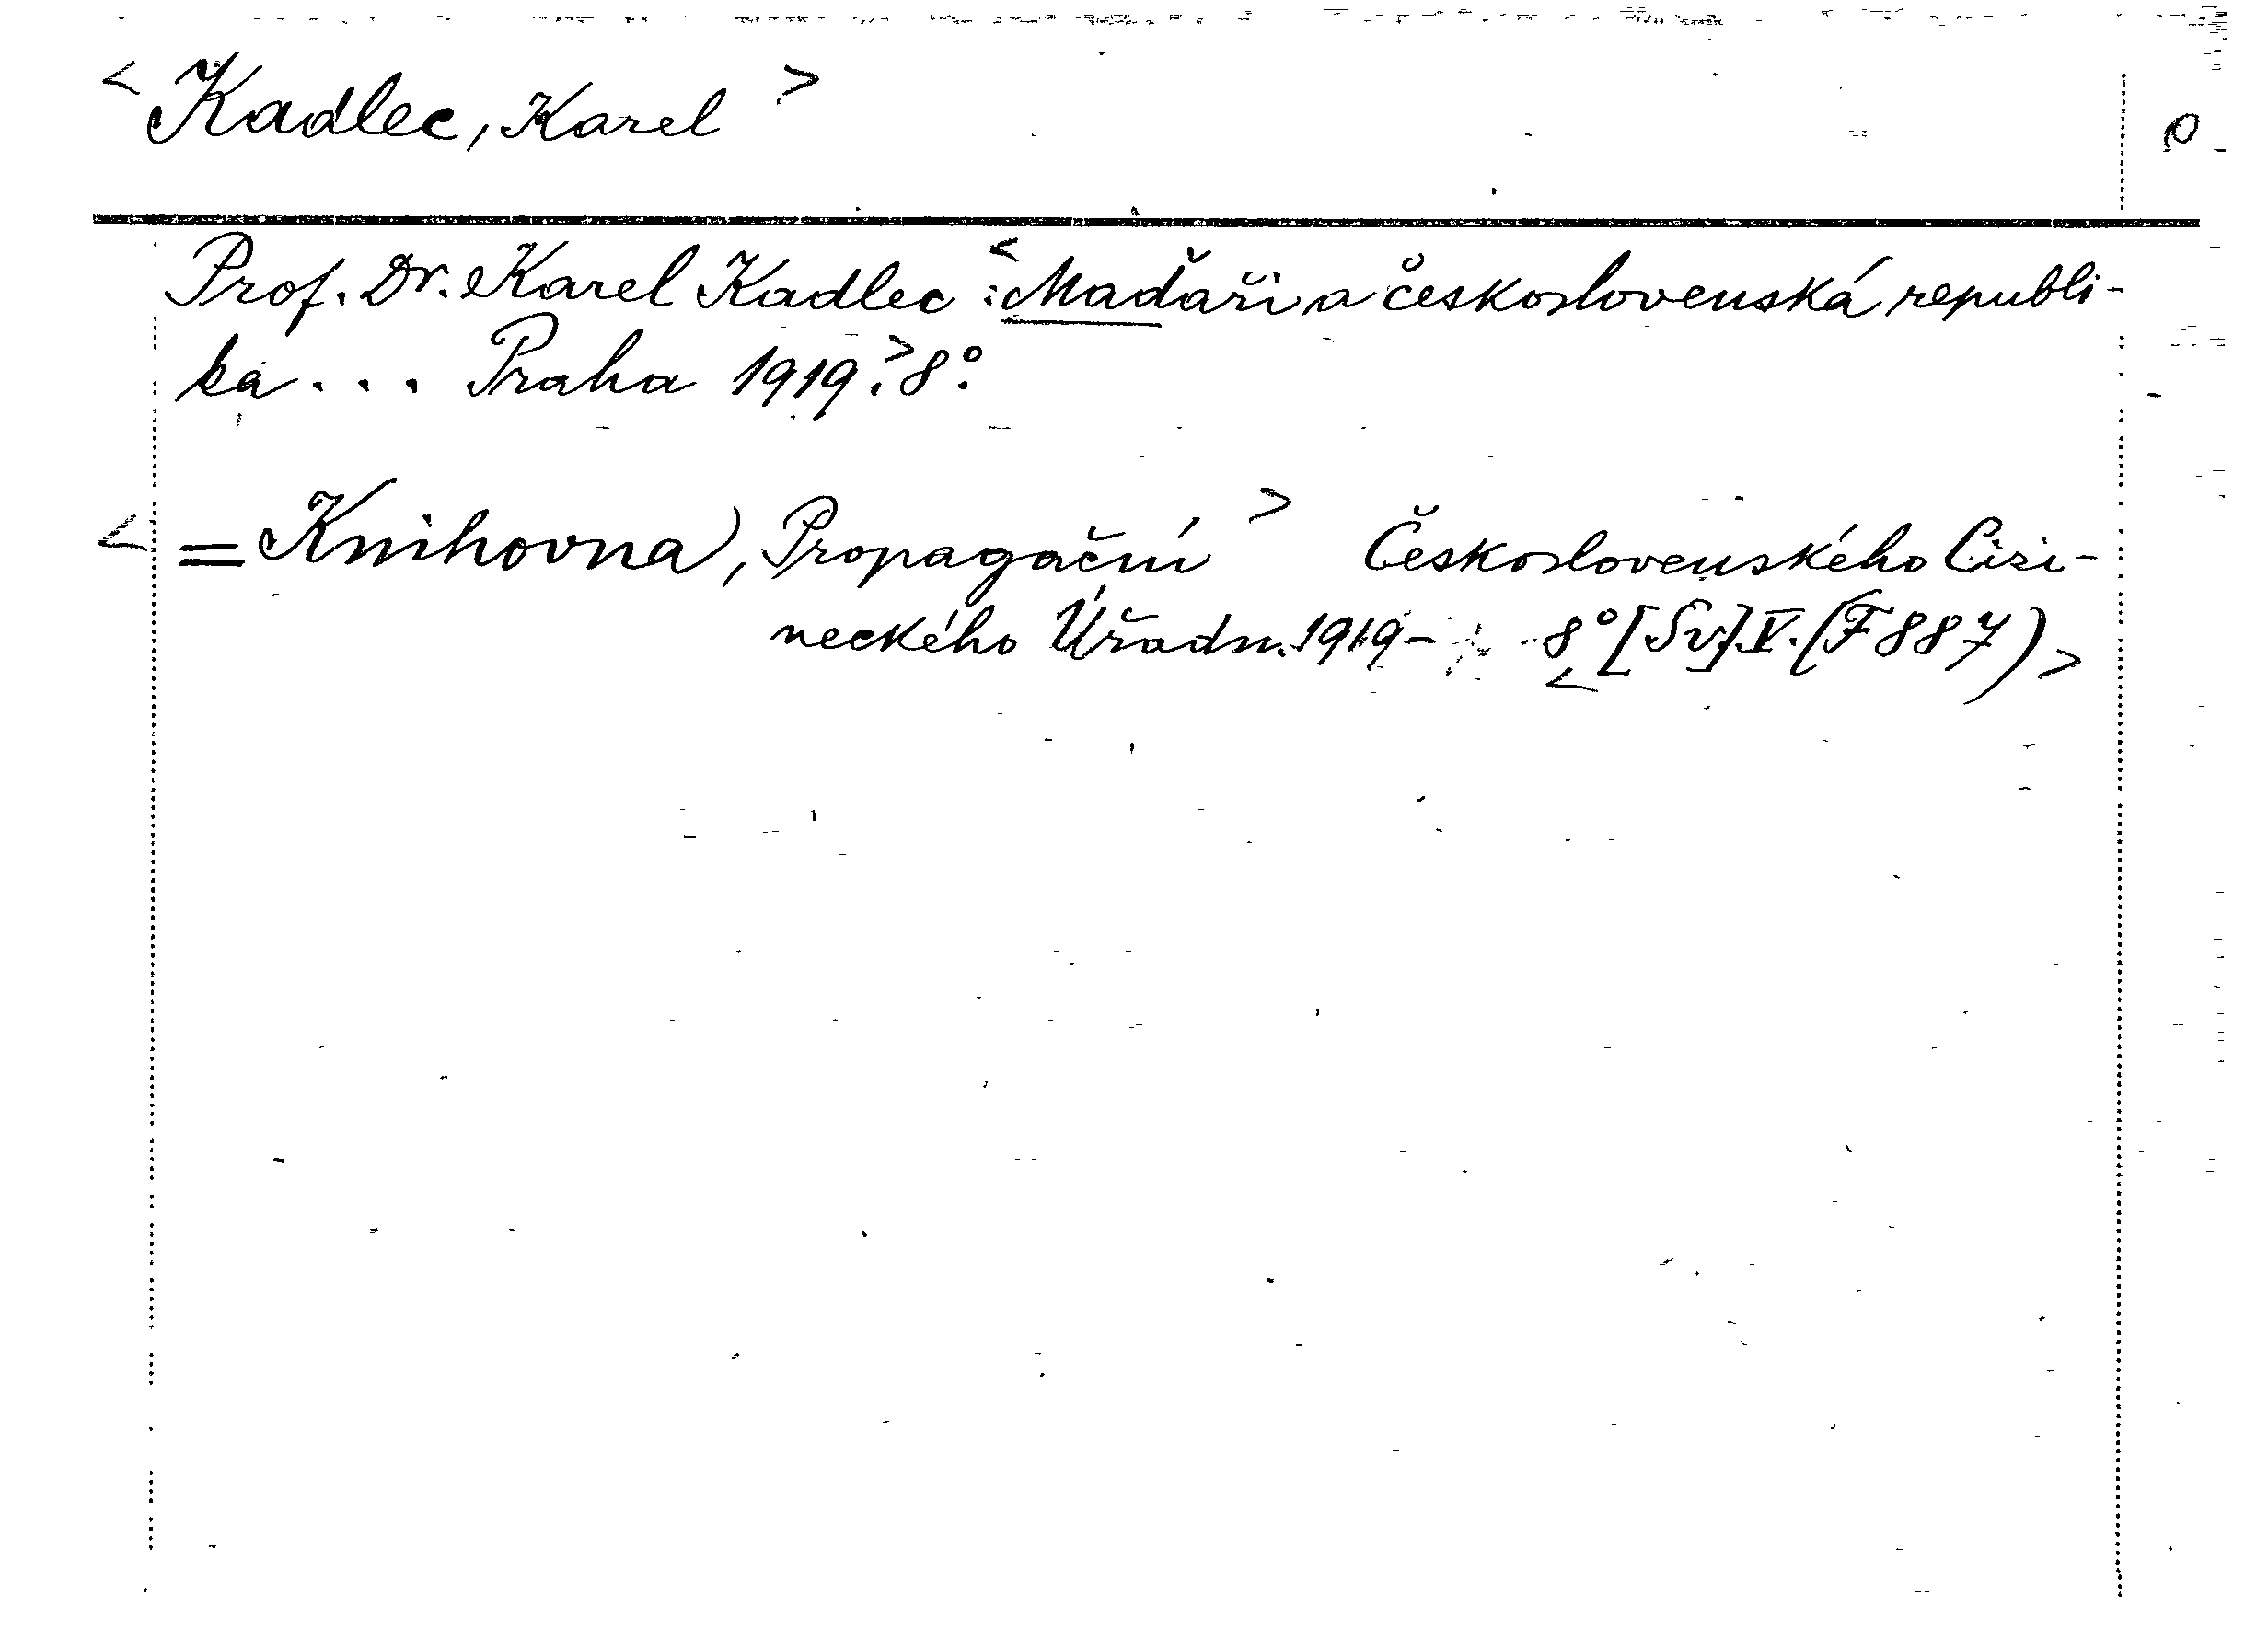 < Kadlec, Karel > O
Prof. Dr. Karel Kadlec : < Maďaři a československá republi-
ka . . . Praha 1919. > 8°.
< = Knihovna, Propagační > Československého Cizi-
neckého Úřadu. 1919- 8° < [Sv]. V. (F 887) >